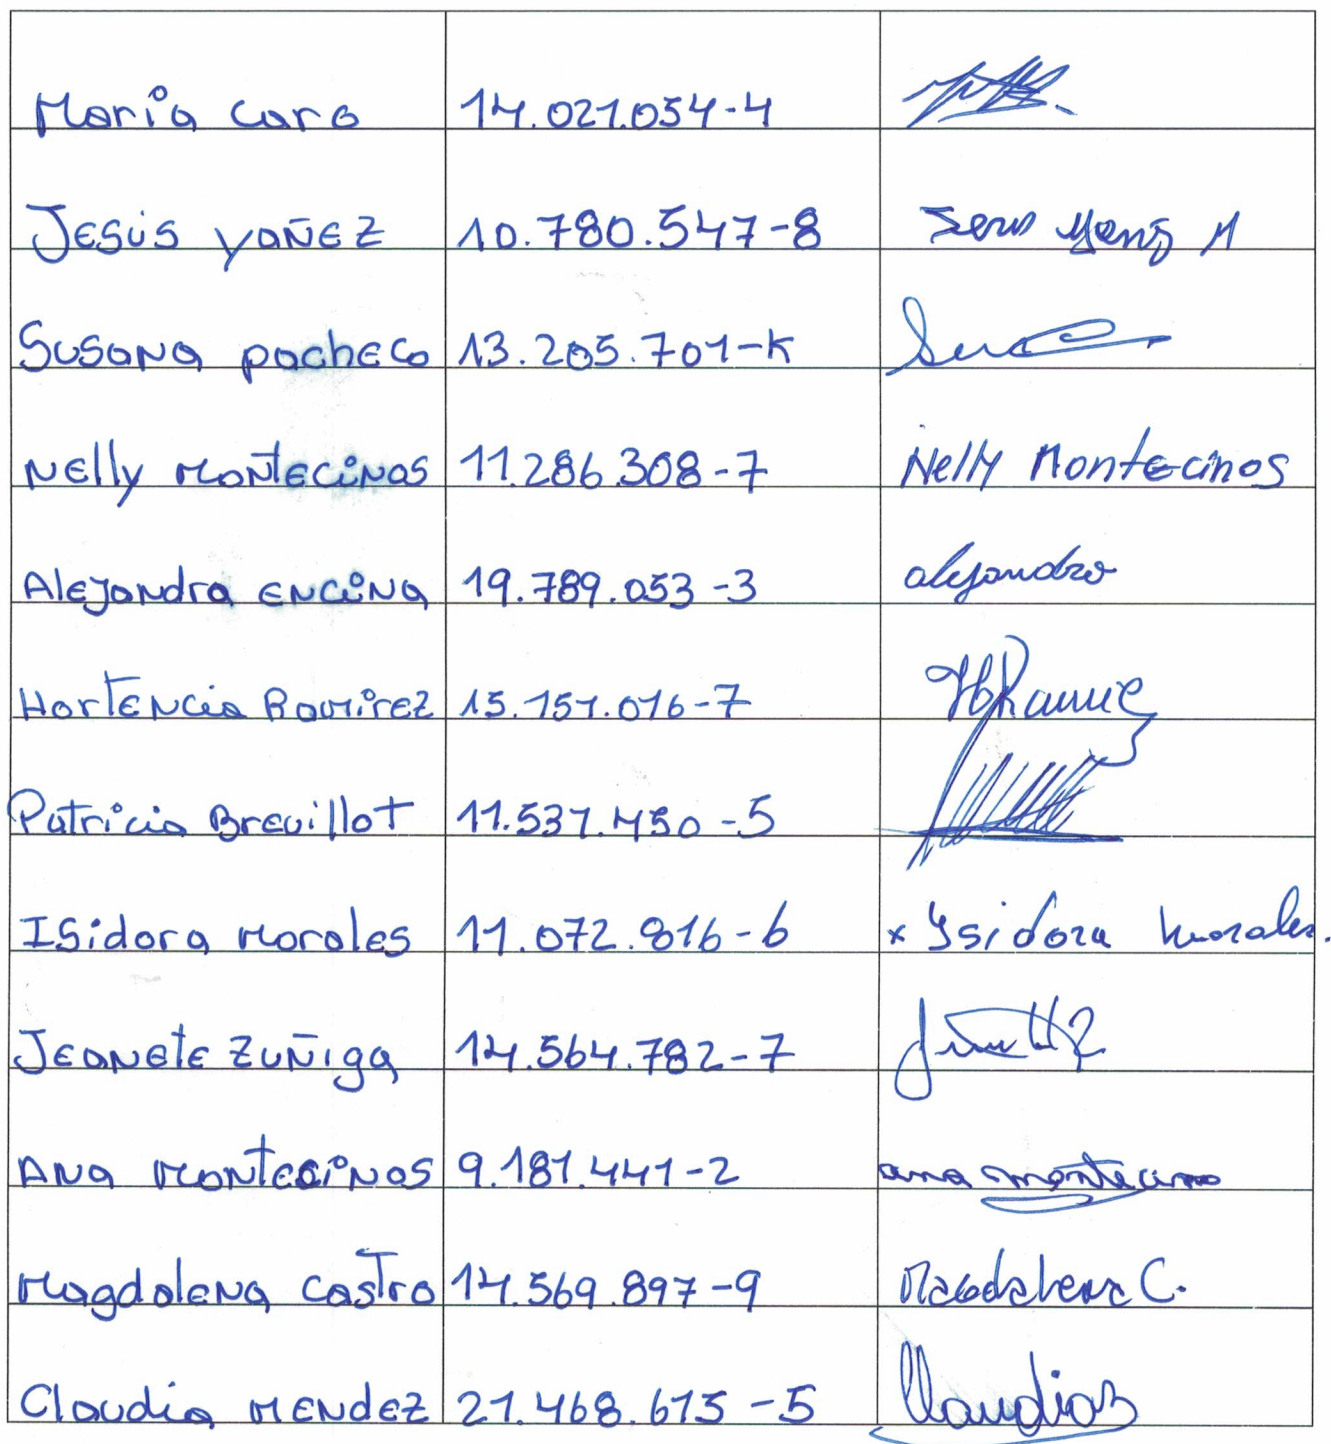 María Caro 14.021.054-4
Jesús Yañez 10.780.547-8
Susana Pacheco 13.205.701-K
Nelly Montecinos 11.286.308-7 Nelly Montecinos
Alejandra Encina 19.789.053-3 alejandra
Hortencia Ramírez 15.151.016-7 H Ramire
Patricia Brevillot 11.531.450-5
Isidora Morales 11.072.816-6 x Isidora Morales.
Jeanete Zuñiga 14.564.782-7
Ana Montecinos 9.181.441-2 ana montecino
Magdalena Castro 14.569.897-9 Magdalena C.
Claudia Mendez 21.468.615-5